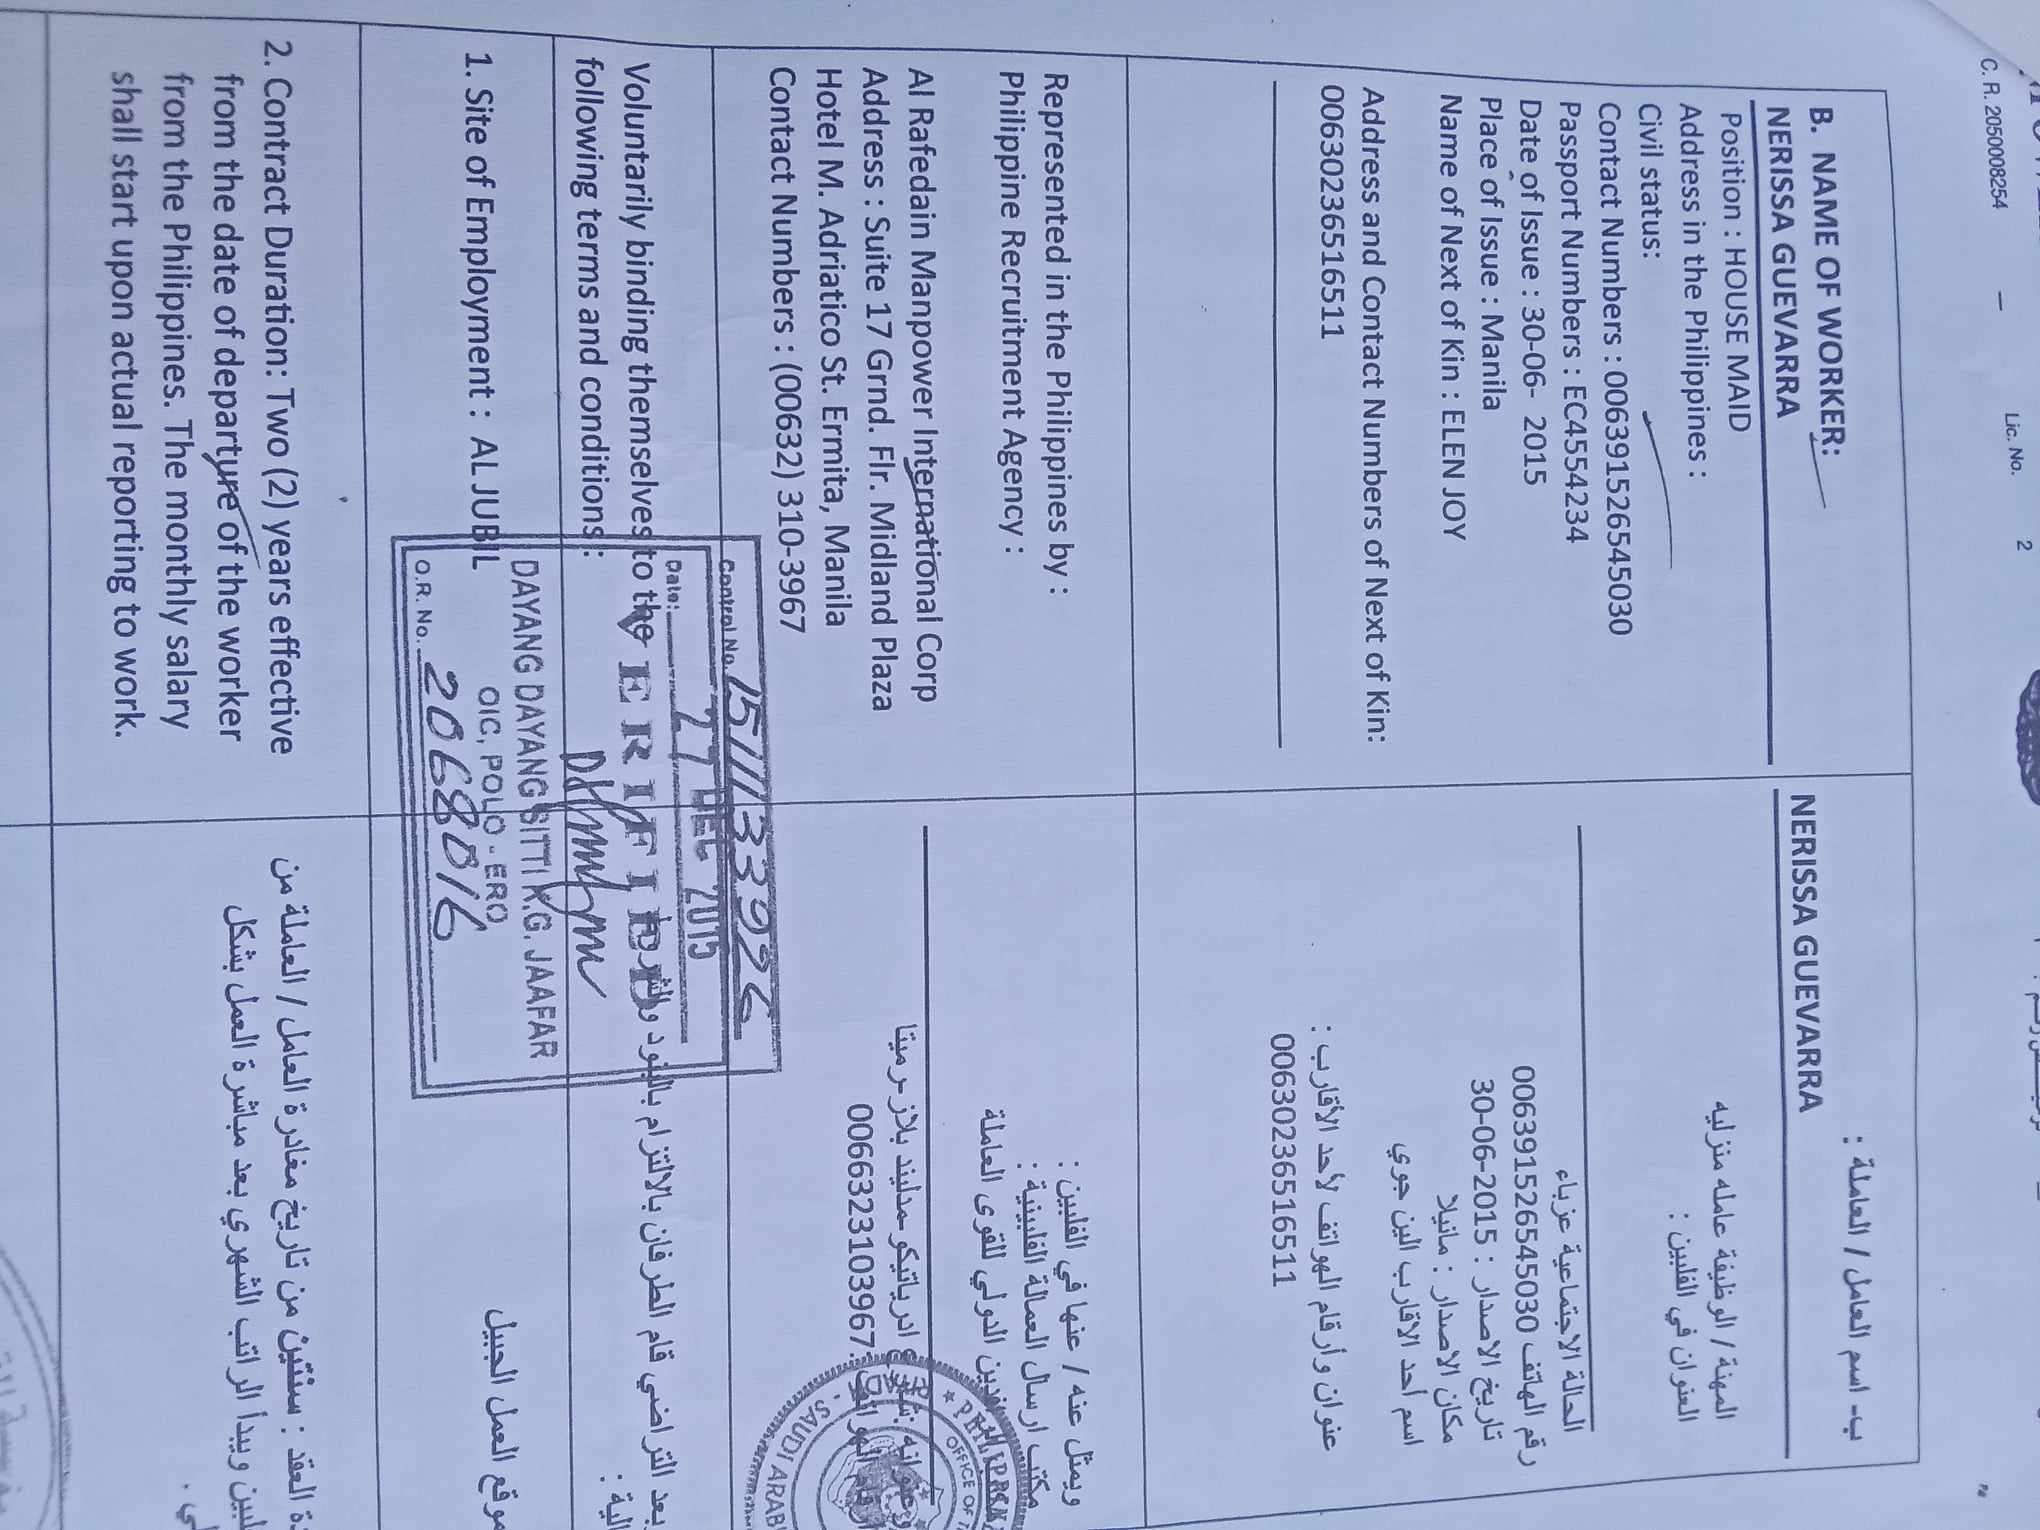 C. R. 2050008254 — Lic. No. 2
B. NAME OF WORKER:
NERISSA GUEVARRA
Position : HOUSE MAID
Address in the Philippines :
Civil status:
Contact Numbers : 00639152654545030
Passport Numbers : EC4554234
Date of Issue : 30-06- 2015
Place of Issue : Manila
Name of Next of Kin : ELEN JOY
Address and Contact Numbers of Next of Kin:
00630236516511
ب- اسم العامل / العاملة :
NERISSA GUEVARRA
المهنة / الوظيفة عامله منزليه
العنوان في الفلبين :
الحالة الاجتماعية عزباء
رقم الهاتف 00639152654545030
تاريخ الاصدار : 2015-06-30
مكان الاصدار : مانيلا
اسم أحد الاقارب الين جوي
عنوان وأرقام الهواتف لأحد الأقارب :
00630236516511
Represented in the Philippines by :
Philippine Recruitment Agency :
Al Rafedain Manpower International Corp
Address : Suite 17 Grnd. Flr. Midland Plaza
Hotel M. Adriatico St. Ermita, Manila
Contact Numbers : (00632) 310-3967
ويمثل عنه / عنها في الفلبين :
مكتب ارسال العمالة الفلبينية :
الدولي للقوى العاملة
ادرياتيكو -مدليند بلاز
0066323103967
Voluntarily binding themselves to the
following terms and conditions :
بعد التراضي قام الطرفان بالالتزام بالبنود
1. Site of Employment : AL JUBIL
موقع العمل الجبيل
Control No. 151133926
Date: 27 DEC 2015
VERIFIED
DAYANG DAYANG SITTI K.G. JAAFAR
OIC, POLO - ERO
O.R. No. 2068016
OFFICE OF
SAUDI ARAB
2. Contract Duration: Two (2) years effective
from the date of departure of the worker
from the Philippines. The monthly salary
shall start upon actual reporting to work.
العقد : سنتين من تاريخ مغادرة العامل / العاملة من
ويبدأ الراتب الشهري بعد مباشرة العمل بشكل